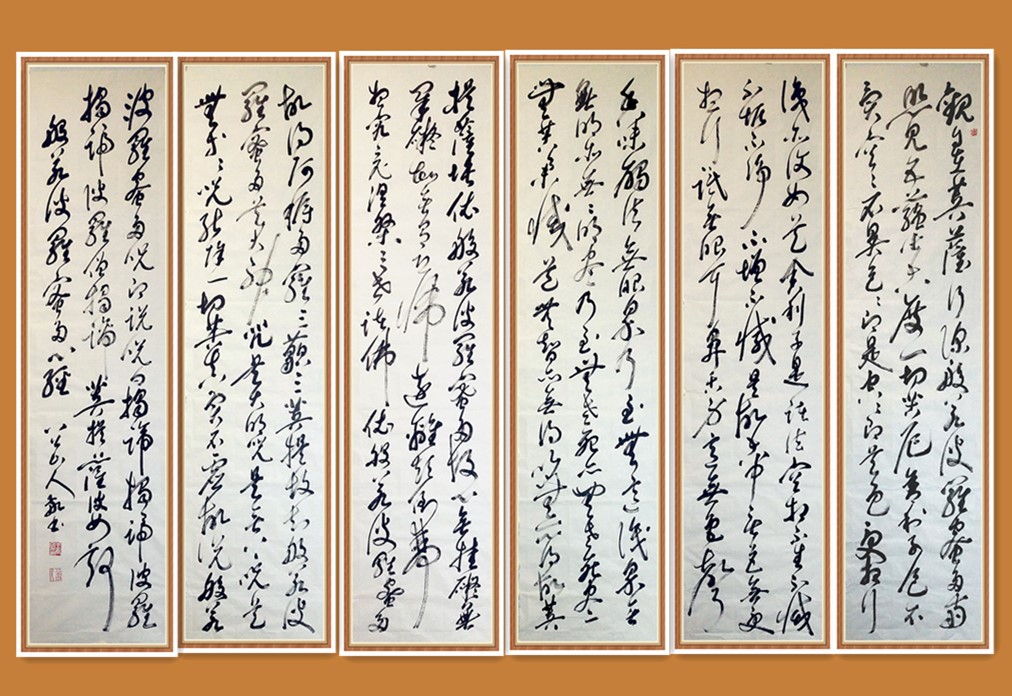 觀自在菩薩行深般若波羅蜜多時
照見五蘊皆空度一切苦厄舍利子色不
異空空不異色色即是空空即是色受想行
識亦復如是舍利子是諸法空相不生不滅
不垢不淨不增不減是故空中無色無受
想行識無眼耳鼻舌身意無色聲
香味觸法無眼界乃至無意識界無
無明亦無無明盡乃至無老死亦無老死盡
無苦集滅道無智亦無得以無所得故菩
提薩埵依般若波羅蜜多故心無掛礙無
罣礙故無有恐怖遠離顛倒夢
想究竟涅槃三世諸佛依般若波羅蜜多
故得阿耨多羅三藐三菩提故知般若波
羅蜜多是大神咒是大明咒是無上咒是
無等等咒能除一切苦真實不虛故說般若
波羅蜜多咒即說咒曰揭諦揭諦波羅
揭諦波羅僧揭諦菩提薩婆訶
般若波羅蜜多心經